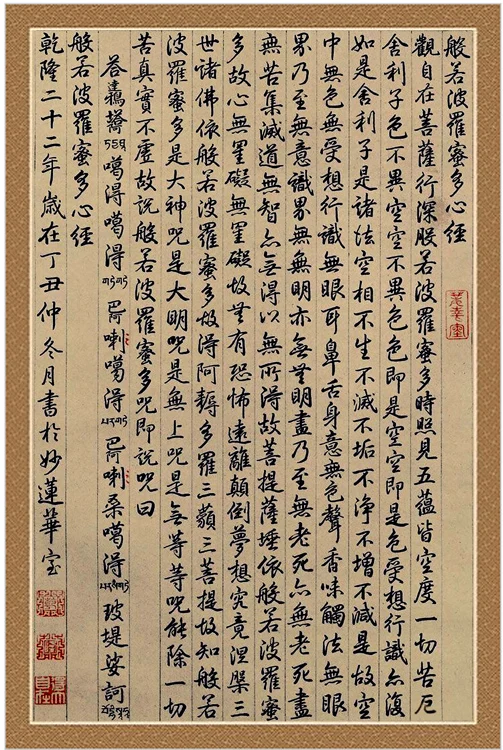 般若波羅蜜多心經
觀自在菩薩行深般若波羅蜜多時照見五蘊皆空度一切苦厄
舍利子色不異空空不異色色即是空空即是色受想行識亦復
如是舍利子是諸法空相不生不滅不垢不淨不增不減是故空
中無色無受想行識無眼耳鼻舌身意無色聲香味觸法無眼
界乃至無意識界無無明亦無無明盡乃至無老死亦無老死盡
無苦集滅道無智亦無得以無所得故菩提薩埵依般若波羅蜜
多故心無罣礙無罣礙故無有恐怖遠離顛倒夢想究竟涅槃三
世諸佛依般若波羅蜜多故得阿耨多羅三藐三菩提故知般若
波羅蜜多是大神咒是大明咒是無上咒是無等等咒能除一切
苦真實不虛故說般若波羅蜜多咒即說咒曰
噶得噶得 巴阿喇噶得 巴阿喇桑噶得 玻堤娑訶
般若波羅蜜多心經
乾隆二十二年歲在丁丑仲冬月書於妙蓮華室